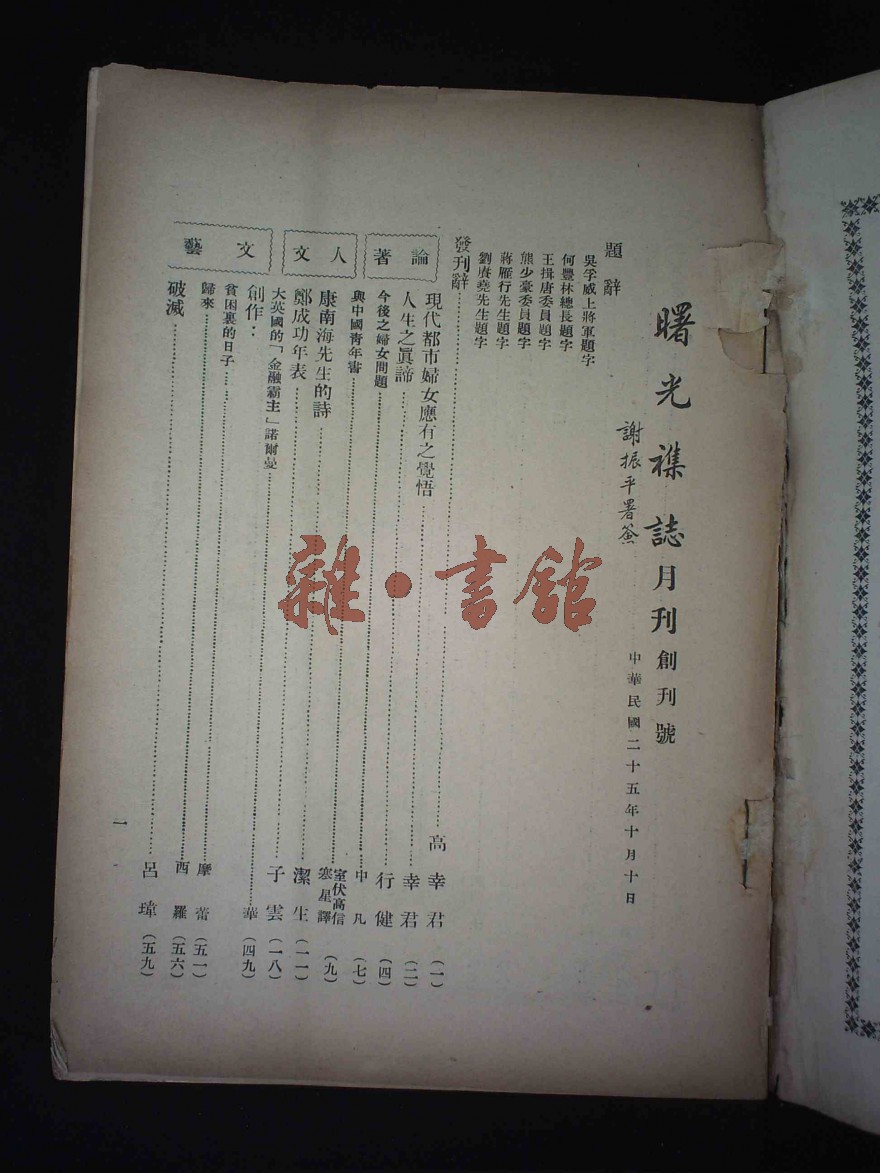 曙光襍誌月刊創刊號
謝振平署簽
中華民國二十五年十月十日
題辭
吳孚威上將軍題字
何豐林總長題字
王揖唐委員題字
熊少豪委員題字
蔣雁行先生題字
劉賡堯先生題字
發刊辭……高幸君(一)
論著
現代都市婦女應有之覺悟……幸君(二)
人生之眞諦……行健(四)
今後之婦女問題……中凡(七)
與中國青年書……室伏高信 寒星譯(九)
人文
康南海先生的詩……潔生(一一)
鄭成功年表……子雲(一八)
大英國的「金融霸主」諾爾曼……華(四九)
文藝
創作：
貧困裏的日子……摩蕾(五一)
歸來……西羅(五六)
破滅……呂瑋(五九)
一
雜·書館